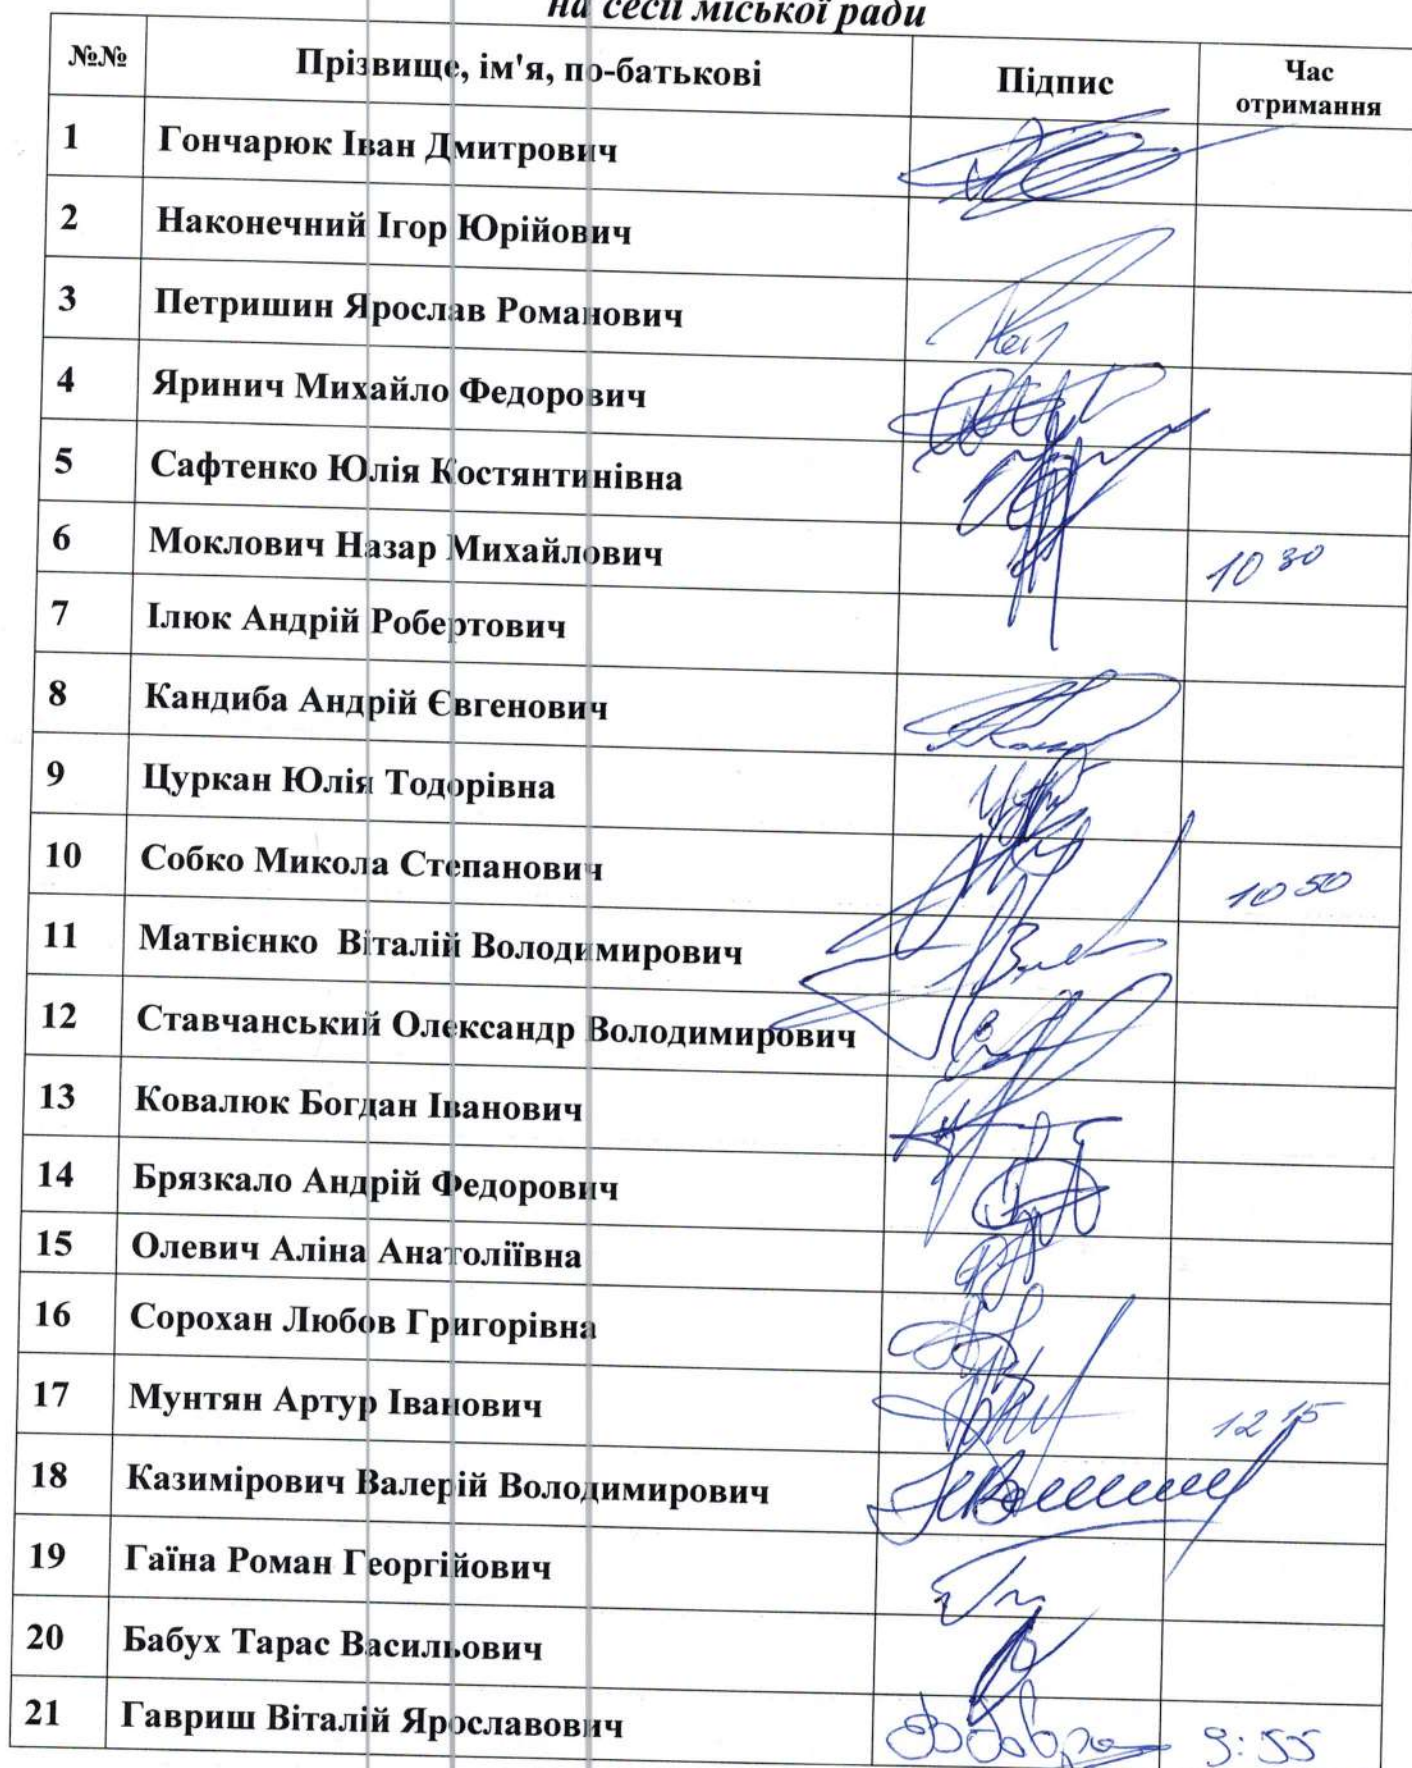 на сесії міської ради
№№ Прізвище, ім'я, по-батькові Підпис Час
отримання
1 Гончарюк Іван Дмитрович
2 Наконечний Ігор Юрійович
3 Петришин Ярослав Романович
4 Яринич Михайло Федорович
5 Сафтенко Юлія Костянтинівна
6 Моклович Назар Михайлович 10 30
7 Ілюк Андрій Робертович
8 Кандиба Андрій Євгенович
9 Цуркан Юлія Тодорівна
10 Собко Микола Степанович 10 50
11 Матвієнко Віталій Володимирович
12 Ставчанський Олександр Володимирович
13 Ковалюк Богдан Іванович
14 Брязкало Андрій Федорович
15 Олевич Аліна Анатоліївна
16 Сорохан Любов Григорівна
17 Мунтян Артур Іванович 12 15
18 Казимірович Валерій Володимирович
19 Гаїна Роман Георгійович
20 Бабух Тарас Васильович
21 Гавриш Віталій Ярославович 9:55